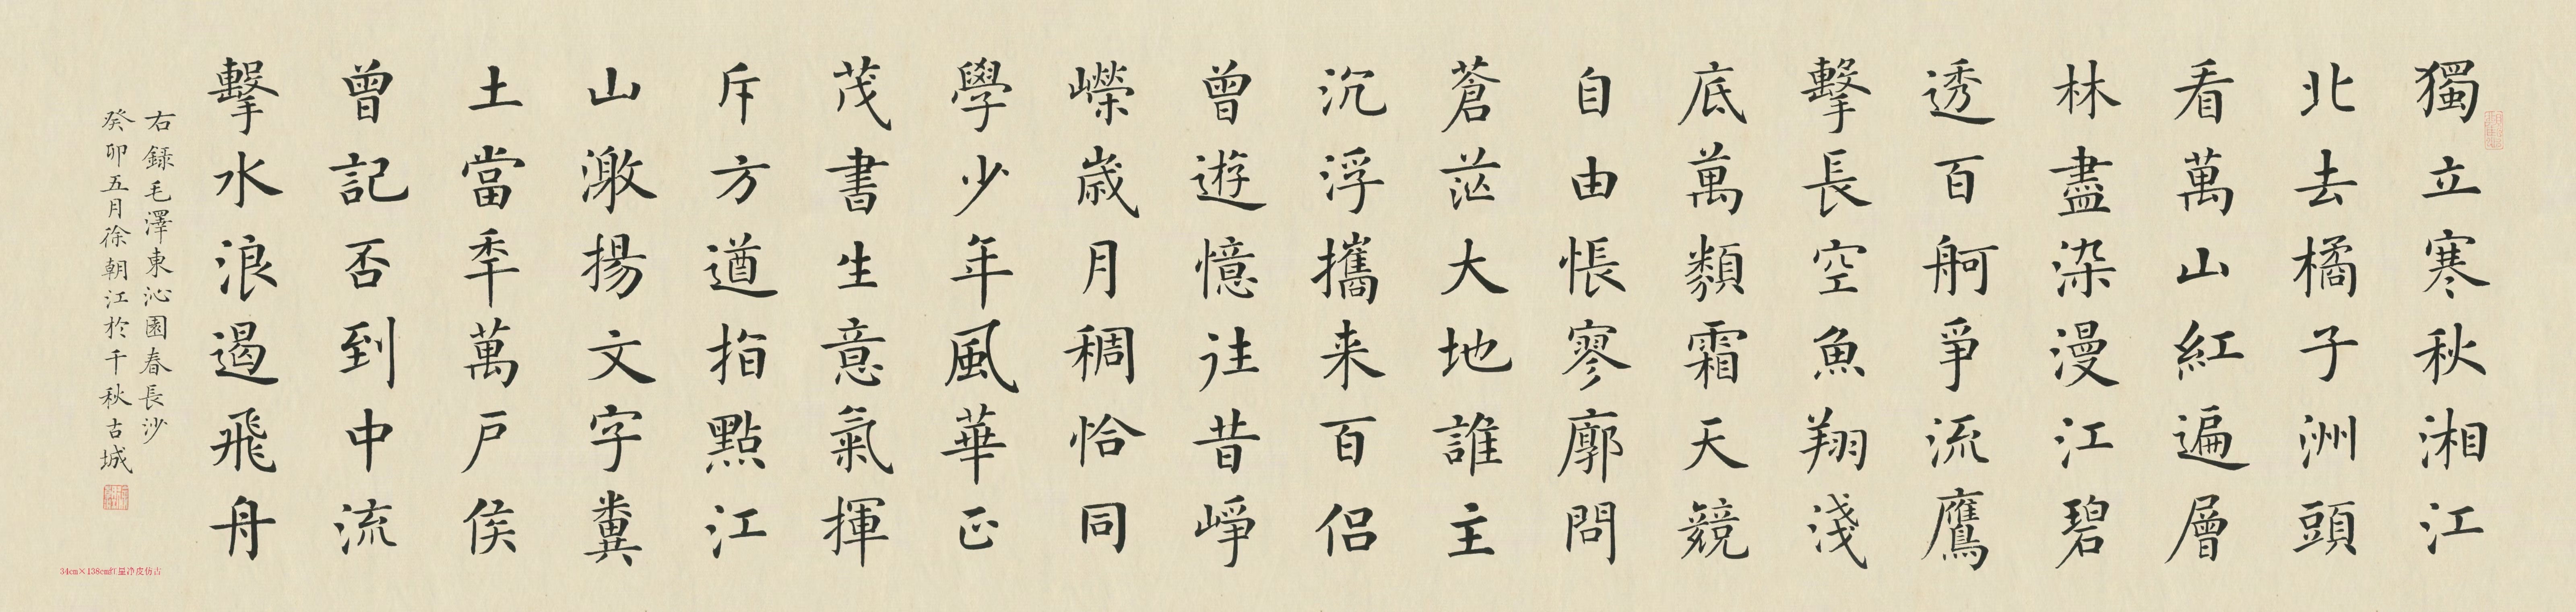 獨立寒秋湘江
北去橘子洲頭
看萬山紅遍層
林盡染漫江碧
透百舸爭流鷹
擊長空魚翔淺
底萬類霜天競
自由悵寥廓問
蒼茫大地誰主
沉浮攜来百侣
曾遊憶往昔崢
嶸歲月稠恰同
學少年風華正
茂書生意氣揮
斥方遒指點江
山激揚文字糞
土當年萬戶侯
曾記否到中流
擊水浪遏飛舟
右録毛澤東沁園春長沙
癸卯五月徐朝江於千秋古城
34cm×138cm红星净皮仿古